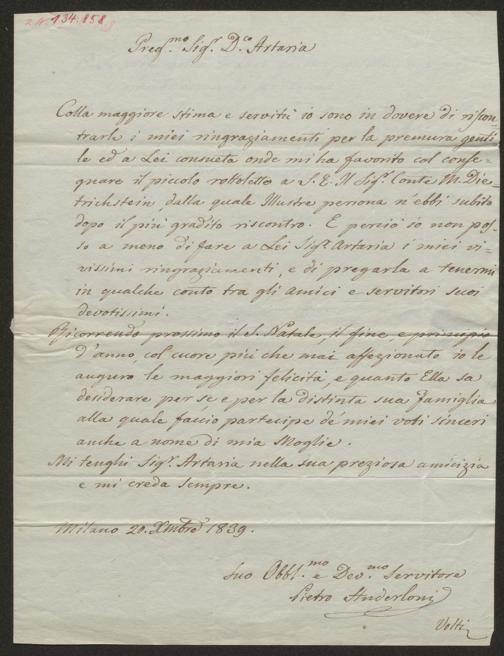 134.858
Preg.mo Sig.r D.co Artaria
Colla maggiore stima e servitù io sono in dovere di riscon=
trarle i miei ringraziamenti per la premura genti
le ed a Lei consueta onde mi ha favorito col conse=
gnare il piccolo rottoletto a S. E. Il Sig.r Conte M. Die=
trichstein, dalla quale Illustre persona n'ebbi subito
dopo il più gradito riscontro. E perciò io non pos=
so a meno di fare a Lei Sig.r Artaria i miei vi=
vissimi ringraziamenti, e di pregarla a tenermi
in qualche conto tra gli amici e servitori suoi
devotissimi.
Ricorrendo prossimo il S. Natale, il fine, e principio
d'anno, col cuore più che mai affezionato io le
auguro le maggiori felicità, e quanto Ella sa
desiderare per se, e per la distinta sua famiglia
alla quale faccio partecipe de' miei voti sinceri
anche a nome di mia Moglie.
Mi tenghi Sig.r Artaria nella sua preziosa amicizia
e mi creda sempre.
Milano 20. Xmbre 1839.
Suo Obbl.mo e Dev.mo Servitore
Pietro Anderloni
Volti